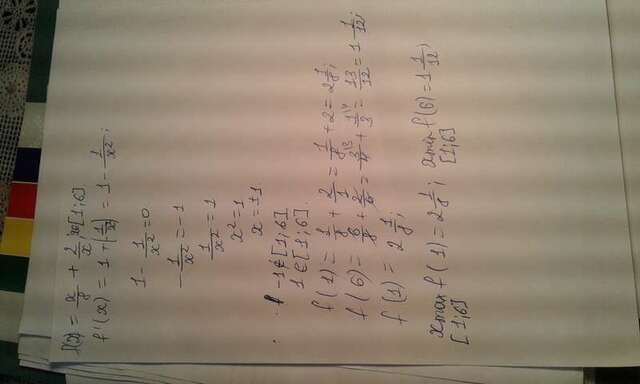 f(x) = x/8 + 2/x ; [1;6]
f'(x) = 1 + (1/x) = 1 - 1/x² ;
1 - 1/x² = 0
- 1/x² = -1
1/x² = 1
x² = 1
x = ±1
-1 ∉ [1;6]
1 ∈ [1;6]
f(1) = 1/8 + 2/1 = 1/8 + 2 = 2 1/8 ;
f(6) = 6/8 + 2/6 = 3/4 + 1/3 = 13/12 = 1 1/12 ;
f(1) = 2 1/8 ;
xmax f(1) = 2 1/8 ; xmin f(6) = 1 1/12 ;
[1;6] [1;6]